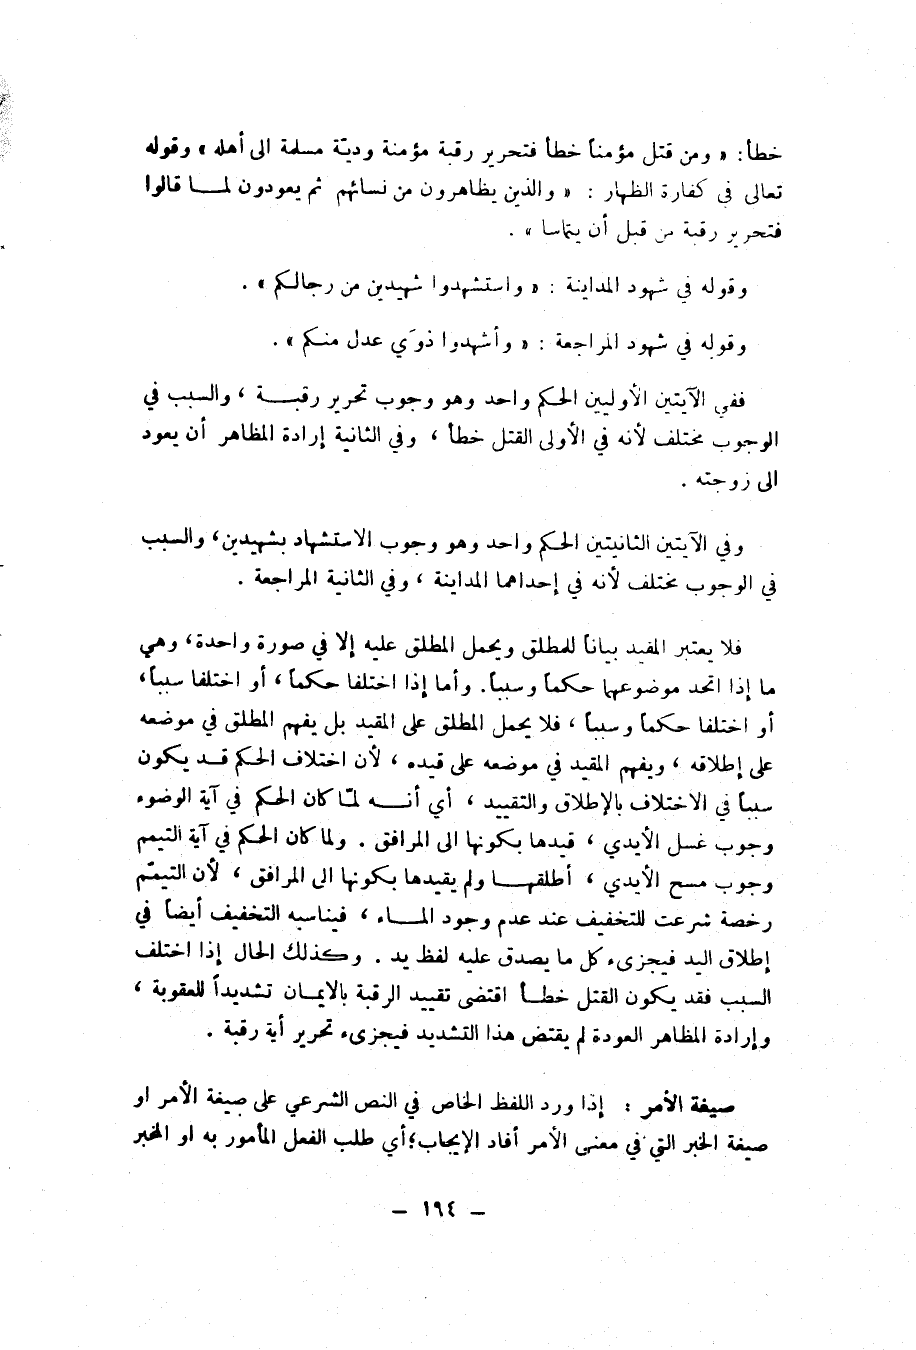 خطأ: « ومن قتل مؤمناً خطأ فتحرير رقبة مؤمنة وديّة مسلمة الى أهله » وقوله
تعالى في كفارة الظهار : « والذين يظاهرون من نسائهم ثم يعودون لما قالوا
فتحرير رقبة من قبل أن يتماسا » .
وقوله في شهود المداينة : « واستشهدوا شهيدين من رجالكم » .
وقوله في شهود المراجعة : « وأشهدوا ذوَي عدل منكم » .
ففي الآيتين الأوليين الحكم واحد وهو وجوب تحرير رقبة ، والسبب في
الوجوب مختلف لأنه في الأولى القتل خطأ ، وفي الثانية إرادة المظاهر أن يعود
الى زوجته .
وفي الآيتين الثانيتين الحكم واحد وهو وجوب الاستشهاد بشهيدين، والسبب
في الوجوب مختلف لأنه في إحداهما المداينة ، وفي الثانية المراجعة .
فلا يعتبر المقيد بياناً للمطلق ويحمل المطلق عليه إلا في صورة واحدة، وهي
ما إذا اتحد موضوعها حكماً وسبباً. وأما إذا اختلفا حكماً ، أو اختلفا سبباً،
أو اختلفا حكماً وسبباً ، فلا يحمل المطلق على المقيد بل يفهم المطلق في موضعه
على إطلاقه ، ويفهم المقيد في موضعه على قيده ، لأن اختلاف الحكم قد يكون
سبباً في الاختلاف بالإطلاق والتقييد ، أي أنه لمّا كان الحكم في آية الوضوء
وجوب غسل الأيدي ، قيدها بكونها الى المرافق . ولما كان الحكم في آية التيمم
وجوب مسح الأيدي ، أطلقها ولم يقيدها بكونها الى المرافق ، لأن التيمّم
رخصة شرعت للتخفيف عند عدم وجود الماء ، فيناسبه التخفيف أيضاً في
إطلاق اليد فيجزىء كل ما يصدق عليه لفظ يد . وكذلك الحال إذا اختلف
السبب فقد يكون القتل خطأ اقتضى تقييد الرقبة بالايمان تشديداً للعقوبة ،
وإرادة المظاهر العودة لم يقتض هذا التشديد فيجزىء تحرير أية رقبة .
صيغة الأمر : إذا ورد اللفظ الخاص في النص الشرعي على صيغة الأمر او
صيغة الخبر التي في معنى الأمر أفاد الإيجاب؛ أي طلب الفعل المأمور به او المخبر
– ١٩٤ –